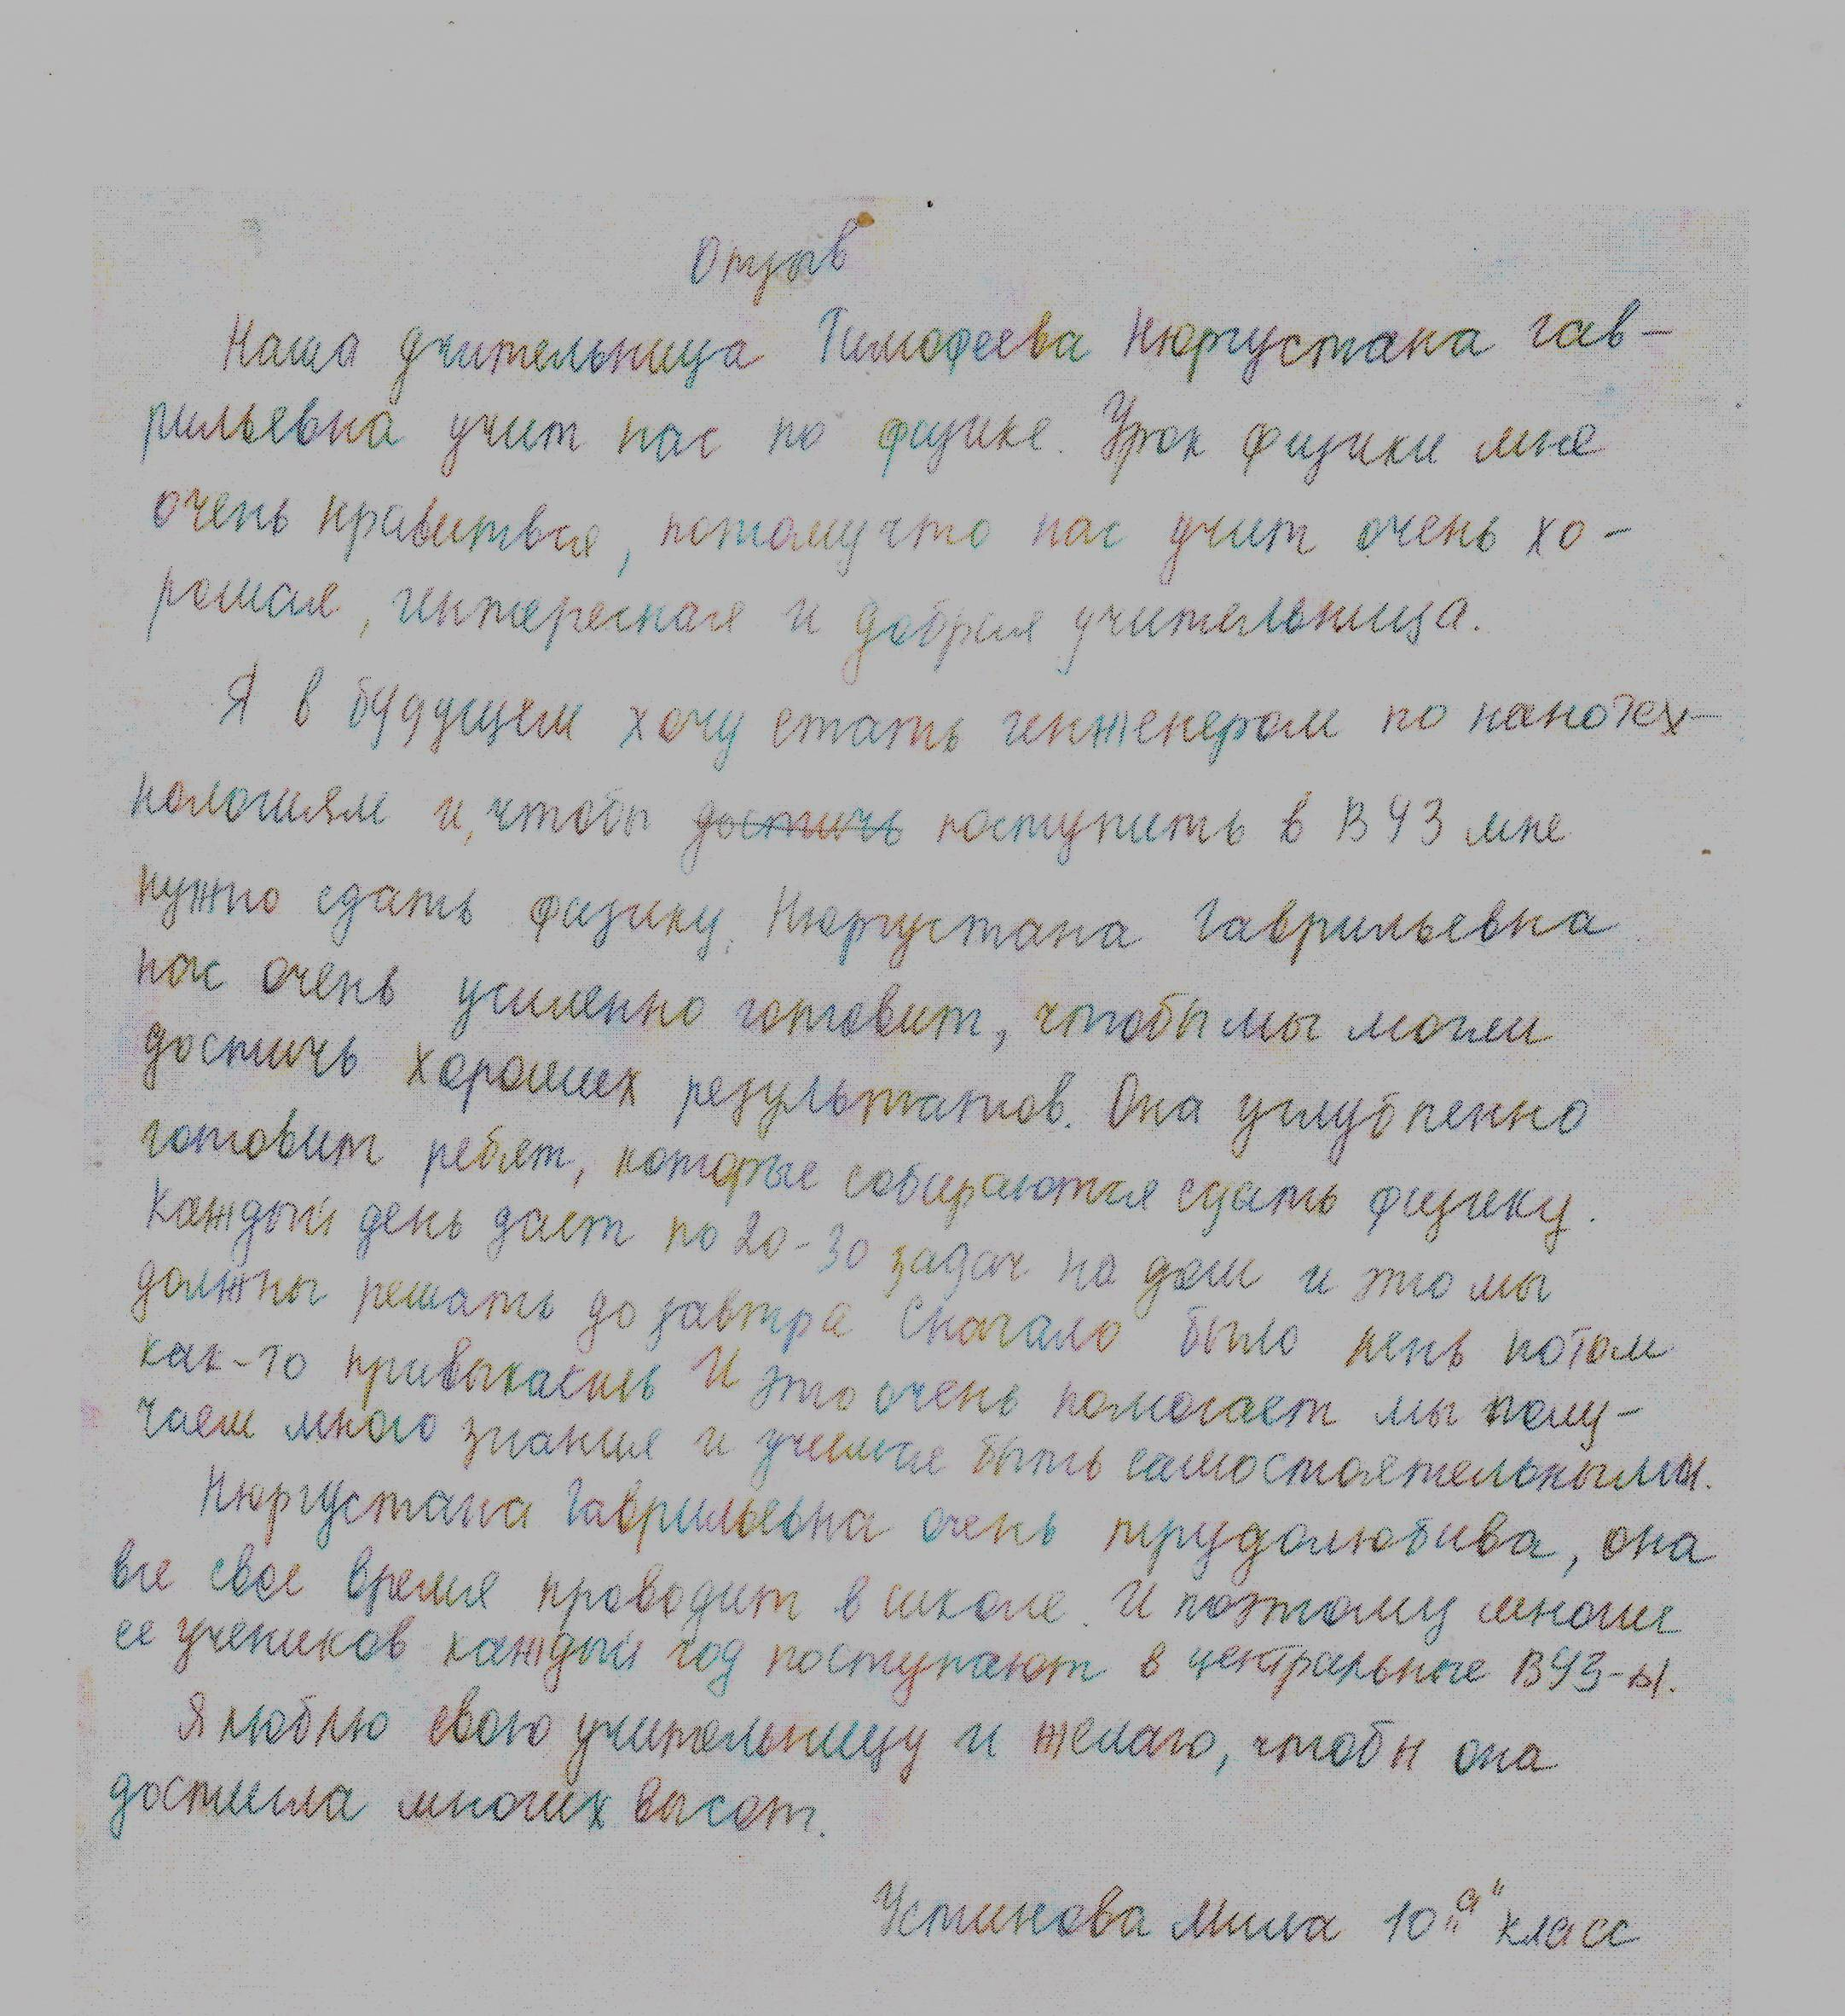 Отзыв
Наша учительница Тимофеева Нюргустана Гав-
рильевна учит нас по физике. Урок физики мне
очень нравиться, потому что нас учит очень хо-
рошая, интересная и добрая учительница.
Я в будущем хочу стать инженером по нанотех-
нологиям и, чтобы достичь поступить в ВУЗ мне
нужно сдать физику, Нюргустана Гаврильевна
нас очень усиленно готовит, чтобы мы могли
достичь хороших результатов. Она углубленно
готовит ребят, которые собираются сдать физику.
Каждый день дает по 20-30 задач на дом и это мы
должны решать до завтра Сначало было лень потом
как-то привыкаешь И это очень помогает мы полу-
чаем много знания и учимся быть самостоятельными.
Нюргустана Гаврильевна очень трудолюбива, она
все свое время проводит в школе. И поэтому многие
ее учеников каждый год поступают в центральные ВУЗ-ы.
Я люблю свою учительницу и желаю, чтобы она
достигла многих высот.
Устинова Мила 10 "а" класс